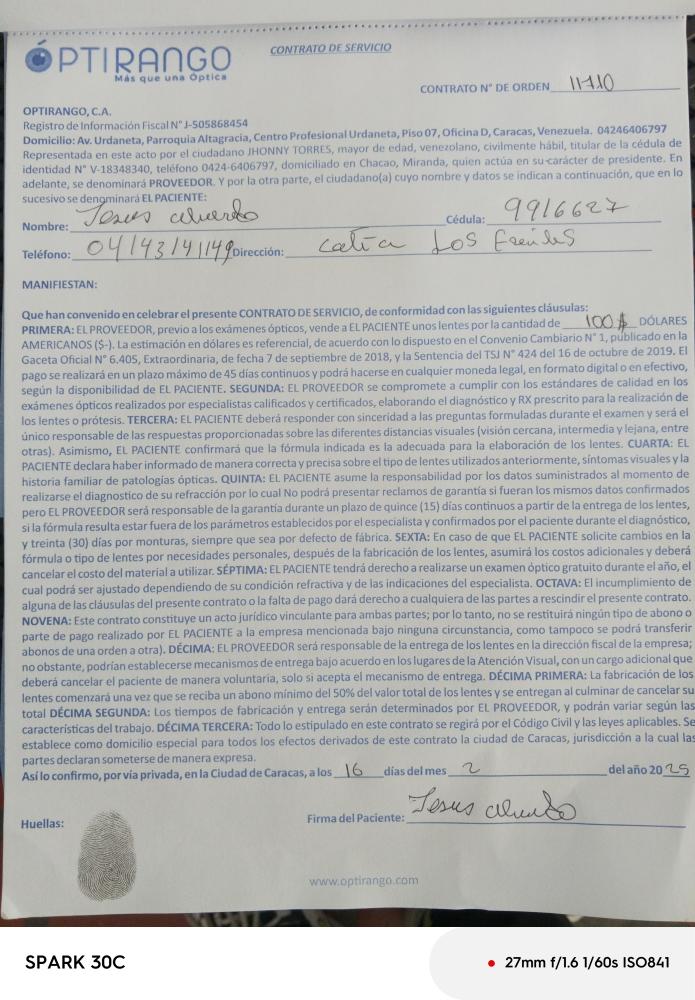 ÓPTIRANGO
Más que una Óptica
CONTRATO DE SERVICIO
CONTRATO N° DE ORDEN 11710
OPTIRANGO, C.A.
Registro de Información Fiscal N° J-505868454
Domicilio: Av. Urdaneta, Parroquia Altagracia, Centro Profesional Urdaneta, Piso 07, Oficina D, Caracas, Venezuela. 04246406797
Representada en este acto por el ciudadano JHONNY TORRES, mayor de edad, venezolano, civilmente hábil, titular de la cédula de
identidad N° V-18348340, teléfono 0424-6406797, domiciliado en Chacao, Miranda, quien actúa en su carácter de presidente. En
adelante, se denominará PROVEEDOR. Y por la otra parte, el ciudadano(a) cuyo nombre y datos se indican a continuación, que en lo
sucesivo se denominará EL PACIENTE:
Nombre: Jesus Cédula: 9916627
Teléfono: 04143141149 Dirección: catia Los
MANIFIESTAN:
Que han convenido en celebrar el presente CONTRATO DE SERVICIO, de conformidad con las siguientes cláusulas:
PRIMERA: EL PROVEEDOR, previo a los exámenes ópticos, vende a EL PACIENTE unos lentes por la cantidad de 100$ DÓLARES
AMERICANOS ($-). La estimación en dólares es referencial, de acuerdo con lo dispuesto en el Convenio Cambiario N° 1, publicado en la
Gaceta Oficial N° 6.405, Extraordinaria, de fecha 7 de septiembre de 2018, y la Sentencia del TSJ N° 424 del 16 de octubre de 2019. El
pago se realizará en un plazo máximo de 45 días continuos y podrá hacerse en cualquier moneda legal, en formato digital o en efectivo,
según la disponibilidad de EL PACIENTE. SEGUNDA: EL PROVEEDOR se compromete a cumplir con los estándares de calidad en los
exámenes ópticos realizados por especialistas calificados y certificados, elaborando el diagnóstico y RX prescrito para la realización de
los lentes o prótesis. TERCERA: EL PACIENTE deberá responder con sinceridad a las preguntas formuladas durante el examen y será el
único responsable de las respuestas proporcionadas sobre las diferentes distancias visuales (visión cercana, intermedia y lejana, entre
otras). Asimismo, EL PACIENTE confirmará que la fórmula indicada es la adecuada para la elaboración de los lentes. CUARTA: EL
PACIENTE declara haber informado de manera correcta y precisa sobre el tipo de lentes utilizados anteriormente, síntomas visuales y la
historia familiar de patologías ópticas. QUINTA: EL PACIENTE asume la responsabilidad por los datos suministrados al momento de
realizarse el diagnostico de su refracción por lo cual No podrá presentar reclamos de garantía si fueran los mismos datos confirmados
pero EL PROVEEDOR será responsable de la garantía durante un plazo de quince (15) días continuos a partir de la entrega de los lentes,
si la fórmula resulta estar fuera de los parámetros establecidos por el especialista y confirmados por el paciente durante el diagnóstico,
y treinta (30) días por monturas, siempre que sea por defecto de fábrica. SEXTA: En caso de que EL PACIENTE solicite cambios en la
fórmula o tipo de lentes por necesidades personales, después de la fabricación de los lentes, asumirá los costos adicionales y deberá
cancelar el costo del material a utilizar. SÉPTIMA: EL PACIENTE tendrá derecho a realizarse un examen óptico gratuito durante el año, el
cual podrá ser ajustado dependiendo de su condición refractiva y de las indicaciones del especialista. OCTAVA: El incumplimiento de
alguna de las cláusulas del presente contrato o la falta de pago dará derecho a cualquiera de las partes a rescindir el presente contrato.
NOVENA: Este contrato constituye un acto jurídico vinculante para ambas partes; por lo tanto, no se restituirá ningún tipo de abono o
parte de pago realizado por EL PACIENTE a la empresa mencionada bajo ninguna circunstancia, como tampoco se podrá transferir
abonos de una orden a otra). DÉCIMA: EL PROVEEDOR será responsable de la entrega de los lentes en la dirección fiscal de la empresa;
no obstante, podrían establecerse mecanismos de entrega bajo acuerdo en los lugares de la Atención Visual, con un cargo adicional que
deberá cancelar el paciente de manera voluntaria, solo si acepta el mecanismo de entrega. DÉCIMA PRIMERA: La fabricación de los
lentes comenzará una vez que se reciba un abono mínimo del 50% del valor total de los lentes y se entregan al culminar de cancelar su
total DÉCIMA SEGUNDA: Los tiempos de fabricación y entrega serán determinados por EL PROVEEDOR, y podrán variar según las
características del trabajo. DÉCIMA TERCERA: Todo lo estipulado en este contrato se regirá por el Código Civil y las leyes aplicables. Se
establece como domicilio especial para todos los efectos derivados de este contrato la ciudad de Caracas, jurisdicción a la cual las
partes declaran someterse de manera expresa.
Así lo confirmo, por vía privada, en la Ciudad de Caracas, a los 16 días del mes 2 del año 2025
Huellas:
Firma del Paciente: Jesus
www.optirango.com
SPARK 30C
27mm f/1.6 1/60s ISO841